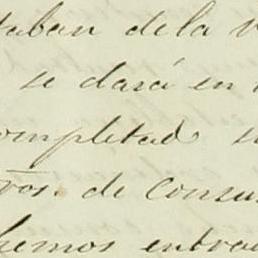 taban dela
se dará en
completad
ros. de Consu
hemos entra